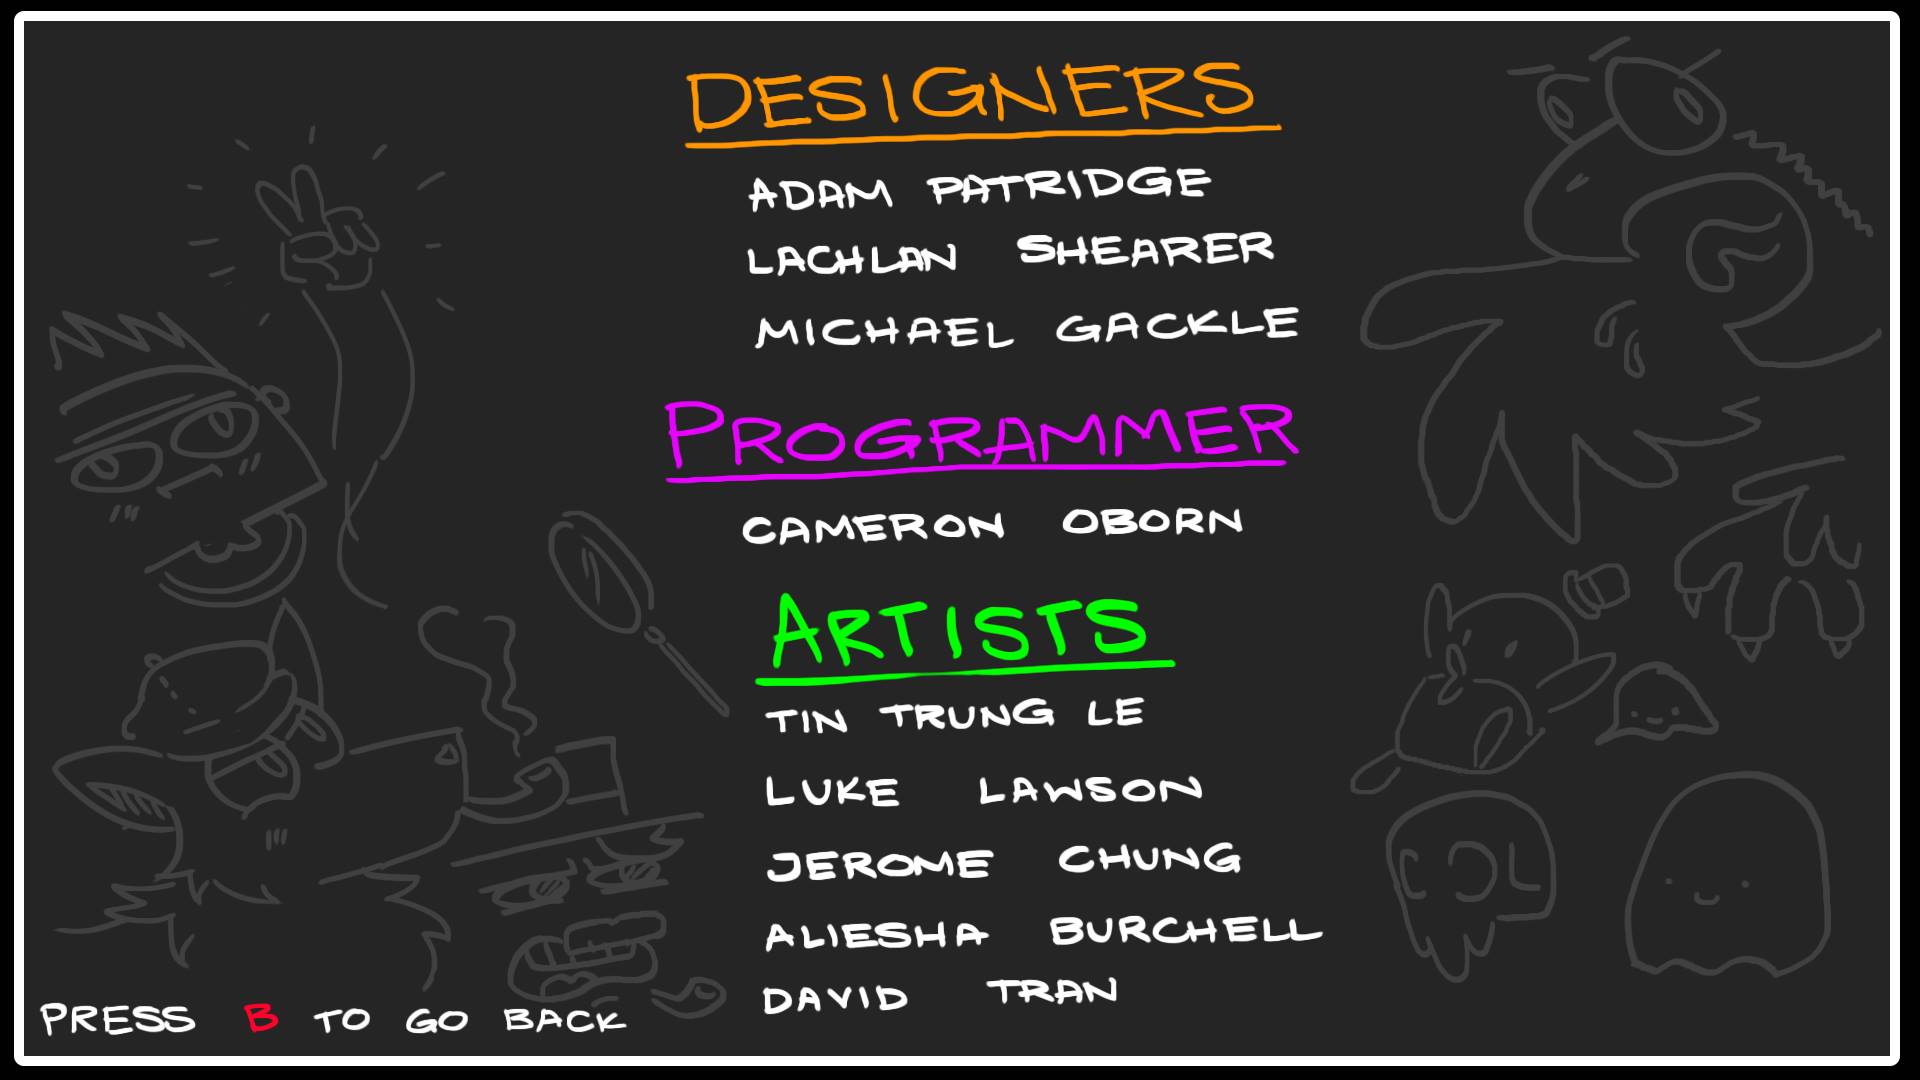 DESIGNERS
ADAM PATRIDGE
LACHLAN SHEARER
MICHAEL GACKLE
PROGRAMMER
CAMERON OBORN
ARTISTS
TIN TRUNG LE
LUKE LAWSON
JEROME CHUNG
ALIESHA BURCHELL
DAVID TRAN
PRESS B TO GO BACK